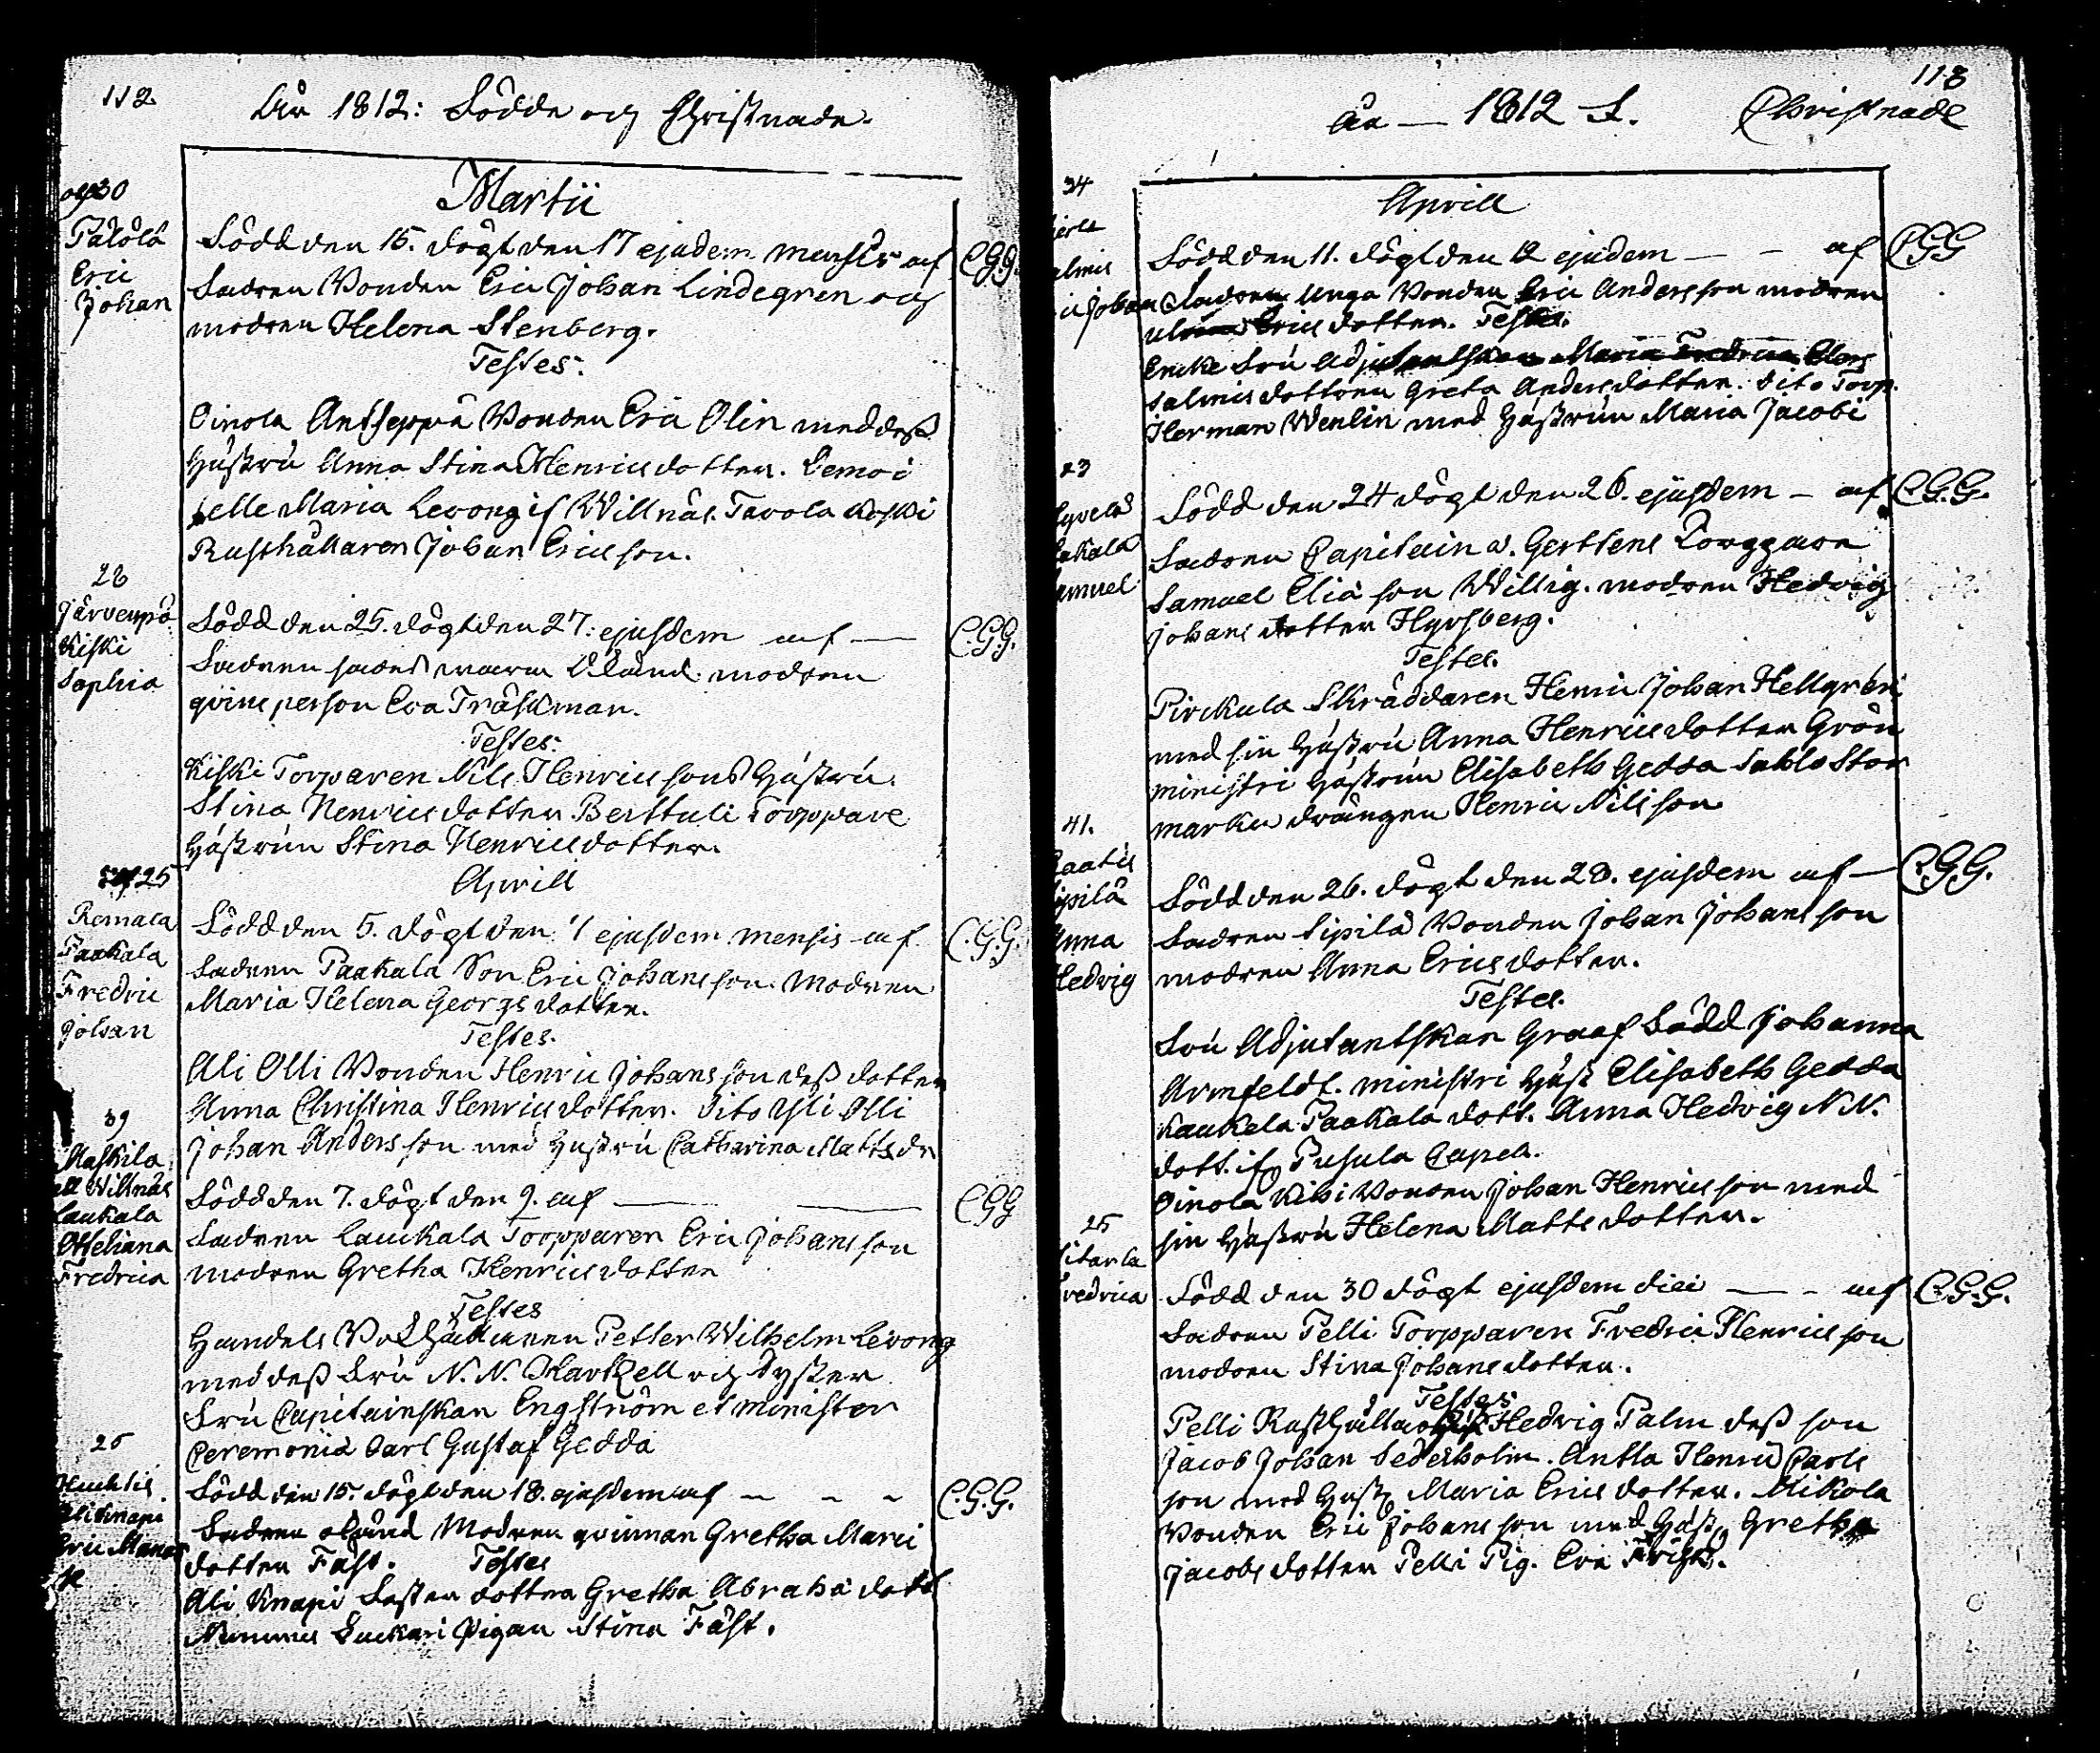 112
År 1812: Födde och Christnade.
30
Palola
Eric
Johan
Martii
Född den 15. döpt den 17 ejusdem mensis af C.G.G.
Fadren Bonden Eric Johan Lindegren och
modren Helena Stenberg.
Testes:
Oinola Antseppä Bonden Eric Olin med dess
Hustru Anna Stina Henricsdotter. Lemo i
Maria Levong if Willnäs. Tavola Koski
Rusthållaren Johan Ericsson.
28
Järvenpä
Kiski
Sophia
Född den 25. döpt den 27. ejusdem af — C.G.G.
Fadren okänd. modren
qvins person Eva Träskman.
Testes:
Kiski Torparen Nils Henricssons Hustru
Stina Henricsdotter Berttuli Torppare
Hustrun Stina Henricsdotter.
25
Remala
Paakala
Fredric
Johan
Aprill
Född den 5. döpt den 7 ejusdem mensis af C.G.G.
Fadren Paakala Son Eric Johansson. Modren
Maria Helena Georgsdotter.
Testes.
Ali Olli Bonden Henric Johansson dess dotter
Anna Christina Henricsdotter. Dito Yli Olli
Johan Andersson med Hustru Catharina Mattsdr
39
Maskila
Willnäs
Laukala
Otteliana
Fredrica
Född den 7. döpt den 9. af — CGG
Fadren Lauckala Torpparen Eric Johansson
modren Gretha Henricsdotter
Testes
Handels Petter Wilhelm Levong
med dess Fru N. N. och Syster
Fru Capitainskan Engström et minister
Ceremonia Carl Gustaf Gedda
25
Huchtis
Ali Knapi
Eric
Född den 15. döpt den 18. ejusdem af - - - C.G.G.
Fadren okänd Modren qvinnan Gretha Marci
dotter Fäst. Testes
Ali Knapi dotter Gretha Abraha dott
Pigan Stina Fäst.
113
År — 1812 F. Christnade
24
Johan
Aprill
Född den 11. döpt den 12 ejudem — - af CGG
Fadren Unga Bonden Eric Andersson modren
Ericsdotter. Testes.
Fru Adjutantskan Maria Fredrica
dottren Greta Andersdotter. dito Torp.
Herman Wenlin med Hustrun Maria Jacobi
23
Samuel
Född den 24 döpt den 26. ejusdem — af C.G.G.
Fadren Capitain v. Gerttens Torppare
Samuel Eliä son Willig. modren Hedvig
Johans dotter Hyrsberg.
Testes.
Pirckula Skräddaren Henric Johan Hellgren
med sin Hustru Anna Henricsdotter Grön
ministri Hustrun Elisabeth Gedda Sahlo Stor
marku drängen Henric Nilsson
41.
Sipilä
Anna
Hedvig
Född den 26. döpt den 28. ejusdem af — C.G.G.
Fadren Sipilä Bonden Johan Johansson
modren Anna Ericsdotter.
Testes.
Fru Adjutantskan Graaf Född Johanna
Armfeldt. ministri Hust Elisabeth Gedda
Kaukela Paakala dott. Anna Hedvig N N.
dott. if Pusula Capell.
Oinola Kihi Bonden Johan Henricsson med
sin Hustru Helena Matts dotter.
25
Sitarla
Fredrica
Född den 30 döpt ejusdem diei — - af C.G.G.
Fadren Pelli Torpparen Fredric Henricsson
modren Stina Johansdotter.
Testes
Pelli Rusthålla Hedvig Palm dess son
Jacob Johan Sederholm. Antla Henric Carls
son med Hust Maria Ericsdotter. Mikola
Bonden Eric Johansson med Hust Gretha
Jacobsdotter Pelli Pig. Eva Frisk.